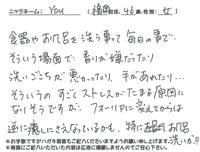 ニックネーム: You (福岡在住, 46歳, 性別: 女)
食器やお風呂を洗う事って毎日の事で、
そういう場面で香りが嫌だったり
洗いごこちが悪かったり、手があれたり…
そういうのすごくストレスがたまる原因に
なりそうですが、フォーリアに変えてからは
逆に癒しにさえなっているかも。特に お風呂
洗いが!!
※お手数ですがハガキ表面もご記入くださいますようお願い申し上げます。
※表面にご記入いただいた内容は広告に掲載しませんのでご安心下さい。